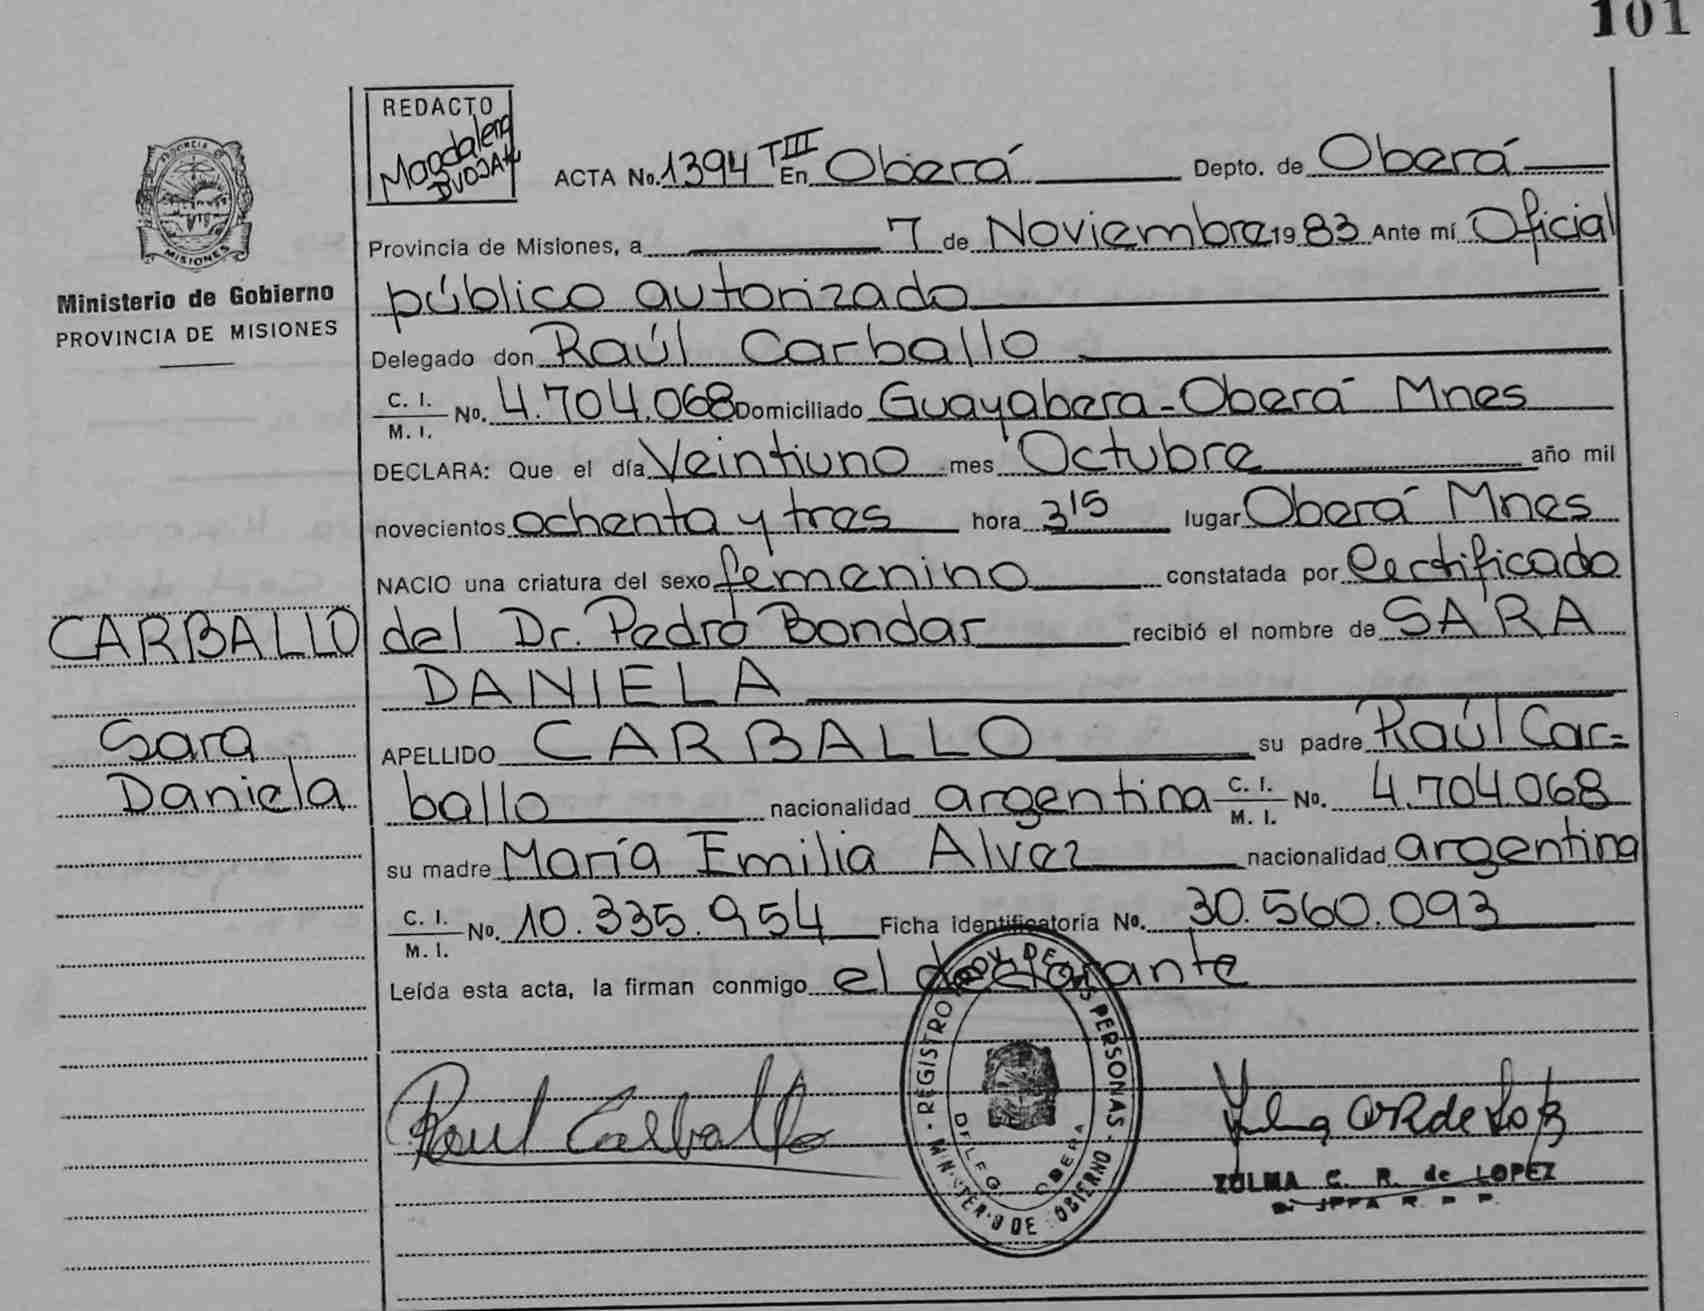 101
REDACTO
Magdalena
ACTA No. 1394 TIII En Oberá Depto. de Oberá
Provincia de Misiones, a 7 de Noviembre 1983 Ante mí Oficial
MISIONES
Ministerio de Gobierno
PROVINCIA DE MISIONES
público autorizado
Delegado don Raúl Carballo
C. I. / M. I. No. 4.704.068 Domiciliado Guayabera - Oberá Mnes
DECLARA: Que el día Veintiuno mes Octubre año mil
novecientos ochenta y tres hora 3 15 lugar Oberá Mnes
NACIO una criatura del sexo femenino constatada por Certificado
CARBALLO
del Dr. Pedro Bondar recibió el nombre de SARA
DANIELA
Sara
Daniela
APELLIDO CARBALLO su padre Raúl Car=
ballo nacionalidad argentina C. I. / M. I. No. 4.704.068
su madre María Emilia Alvez nacionalidad argentina
C. I. / M. I. No. 10.335.954 Ficha identificatoria No. 30.560.093
Leída esta acta, la firman conmigo el declarante
REGISTRO PROV. DE LAS PERSONAS
MINISTERIO DE GOBIERNO
DELEG. OBERA
Raul Carballo
ZULMA C. R. de LOPEZ